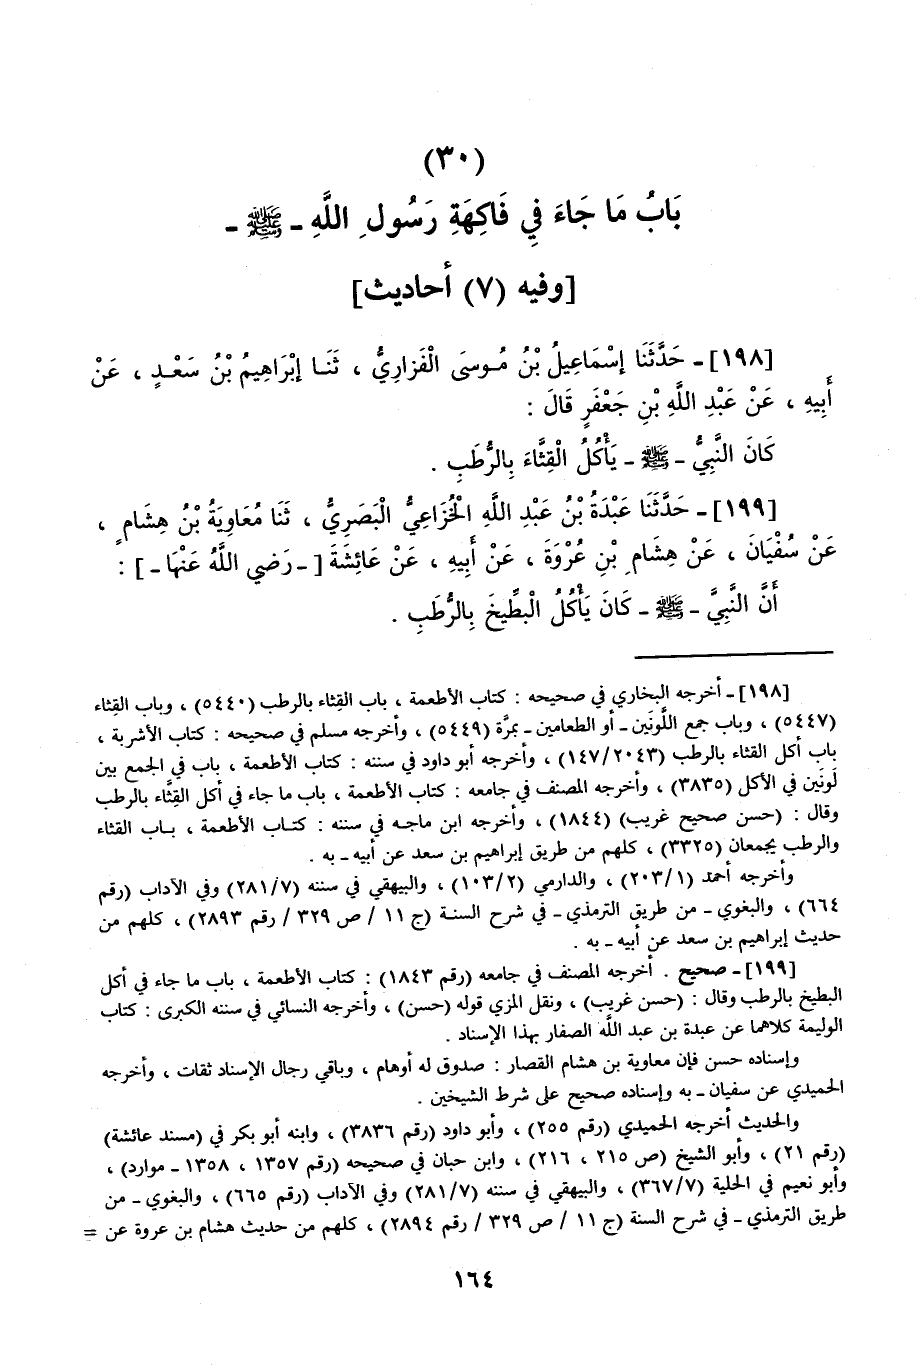 (٣٠)
بَابُ مَا جَاءَ فِي فَاكِهَةِ رَسُولِ اللَّهِ ـ ﷺ ـ
[وفيه (٧) أحاديث]
[١٩٨] ـ حَدَّثَنَا إِسْمَاعِيلُ بْنُ مُوسَى الْفَزَارِيُّ ، ثَنَا إبْرَاهِيمُ بْنُ سَعْدٍ ، عَنْ
أَبِيهِ ، عَنْ عَبْدِ اللَّهِ بْنِ جَعْفَرٍ قَالَ :
كَانَ النَّبِيُّ ـ ﷺ ـ يَأْكُلُ الْقِثَّاءَ بِالرُّطَبِ .
[١٩٩] ـ حَدَّثَنَا عَبْدَةُ بْنُ عَبْدِ اللَّهِ الْخُزَاعِيُّ الْبَصَرِيُّ ، ثَنَا مُعَاوِيَةُ بْنُ هِشَامٍ ،
عَنْ سُفْيَانَ ، عَنْ هِشَامِ بْنِ عُرْوَةَ ، عَنْ أَبِيهِ ، عَنْ عَائِشَةَ [ ـ رَضي اللَّهُ عَنْهَا ـ ] :
أَنَّ النَّبِيَّ ـ ﷺ ـ كَانَ يَأْكُلُ الْبِطِّيخَ بِالرُّطَبِ .
[١٩٨] ـ أخرجه البخاري في صحيحه : كتاب الأطعمة ، باب القِثاء بالرطب (٥٤٤٠) ، وباب القِثاء
(٥٤٤٧) ، وباب جمع اللَّونَين ـ أو الطعامين ـ بمرَّة (٥٤٤٩) ، وأخرجه مسلم في صحيحه : كتاب الأشربة ،
باب أكل القثاء بالرطب (١٤٧/٢٠٤٣) ، وأخرجه أبو داود في سننه : كتاب الأطعمة ، باب في الجمع بين
لَونَين في الأكل (٣٨٣٥) ، وأخرجه المصنف في جامعه : كتاب الأطعمة ، باب ما جاء في أكل القِثَّاء بالرطب
وقال : (حسن صحيح غريب) (١٨٤٤) ، وأخرجه ابن ماجه في سننه : كتاب الأطعمة ، باب القثاء
والرطب يجمعان (٣٣٢٥) ، كلهم من طريق إبراهيم بن سعد عن أبيه ـ به .
وأخرجه أحمد (٢٠٣/١) ، والدارمي (١٠٣/٢) ، والبيهقي في سننه (٢٨١/٧) وفي الآداب (رقم
٦٦٤) ، والبغوي ـ من طريق الترمذي ـ في شرح السنة (ج ١١ / ص ٣٢٩ / رقم ٢٨٩٣) ، كلهم من
حديث إبراهيم بن سعد عن أبيه ـ به .
[١٩٩] ـ صحيح . أخرجه المصنف في جامعه (رقم ١٨٤٣) : كتاب الأطعمة ، باب ما جاء في أكل
البطيخ بالرطب وقال : (حسن غريب) ، ونقل المزي قوله (حسن) ، وأخرجه النسائي في سننه الكبرى : كتاب
الوليمة كلاهما عن عبدة بن عبد اللَّه الصفار بهذا الإسناد .
وإسناده حسن فإن معاوية بن هشام القصار : صدوق له أوهام ، وباقي رجال الإسناد ثقات ، وأخرجه
الحميدي عن سفيان ـ به وإسناده صحيح على شرط الشيخين .
والحديث أخرجه الحميدي (رقم ٢٥٥) ، وأبو داود (رقم ٣٨٣٦) ، وابنه أبو بكر في (مسند عائشة)
(رقم ٢١) ، وأبو الشيخ (ص ٢١٥ ، ٢١٦) ، وابن حبان في صحيحه (رقم ١٣٥٧ ، ١٣٥٨ ـ موارد) ،
وأبو نعيم في الحلية (٣٦٧/٧) ، والبيهقي في سننه (٢٨١/٧) وفي الآداب (رقم ٦٦٥) ، والبغوي ـ من
طريق الترمذي ـ في شرح السنة (ج ١١ / ص ٣٢٩ / رقم ٢٨٩٤) ، كلهم من حديث هشام بن عروة عن =
١٦٤